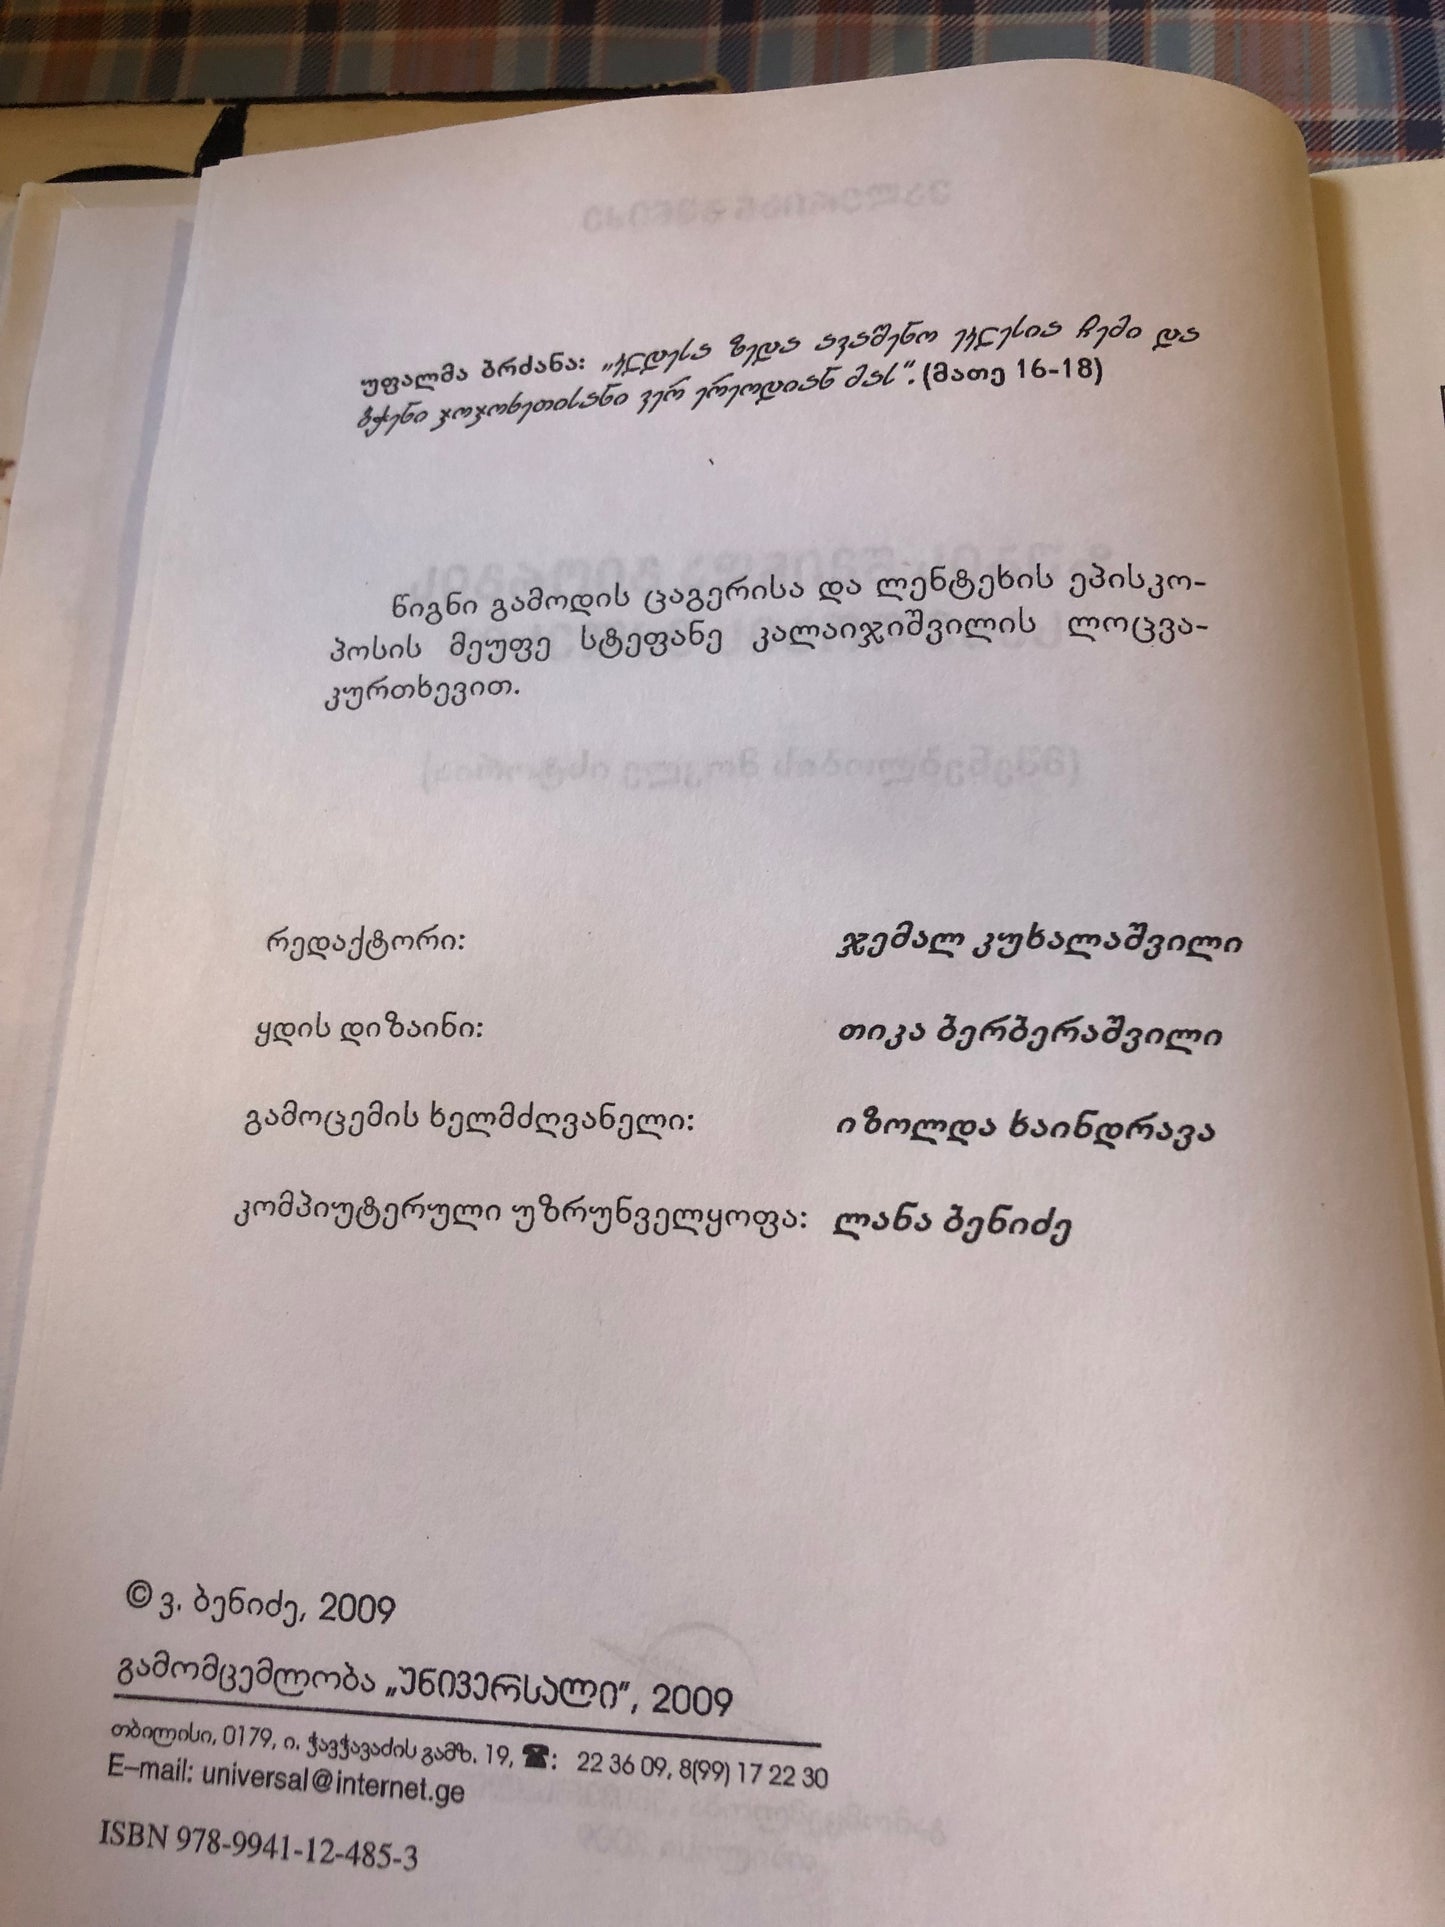 უფალმა ბრძანა: „კლდესა ზედა ავაშენო ეკლესია ჩემი და
ბჭენი ჯოჯოხეთისანი ვერ ერეოდიან მას“. (მათე 16-18)
წიგნი გამოდის ცაგერისა და ლენტეხის ეპისკო-
პოსის მეუფე სტეფანე კალაიჯიშვილის ლოცვა-
კურთხევით.
რედაქტორი: ჯემალ კუხალაშვილი
ყდის დიზაინი: თიკა ბერბერაშვილი
გამოცემის ხელმძღვანელი: იზოლდა ხაინდრავა
კომპიუტერული უზრუნველყოფა: ლანა ბენიძე
© ვ. ბენიძე, 2009
გამომცემლობა „უნივერსალი“, 2009
თბილისი, 0179, ი. ჭავჭავაძის გამზ. 19, ☎: 22 36 09, 8(99) 17 22 30
E–mail: universal@internet.ge
ISBN 978-9941-12-485-3